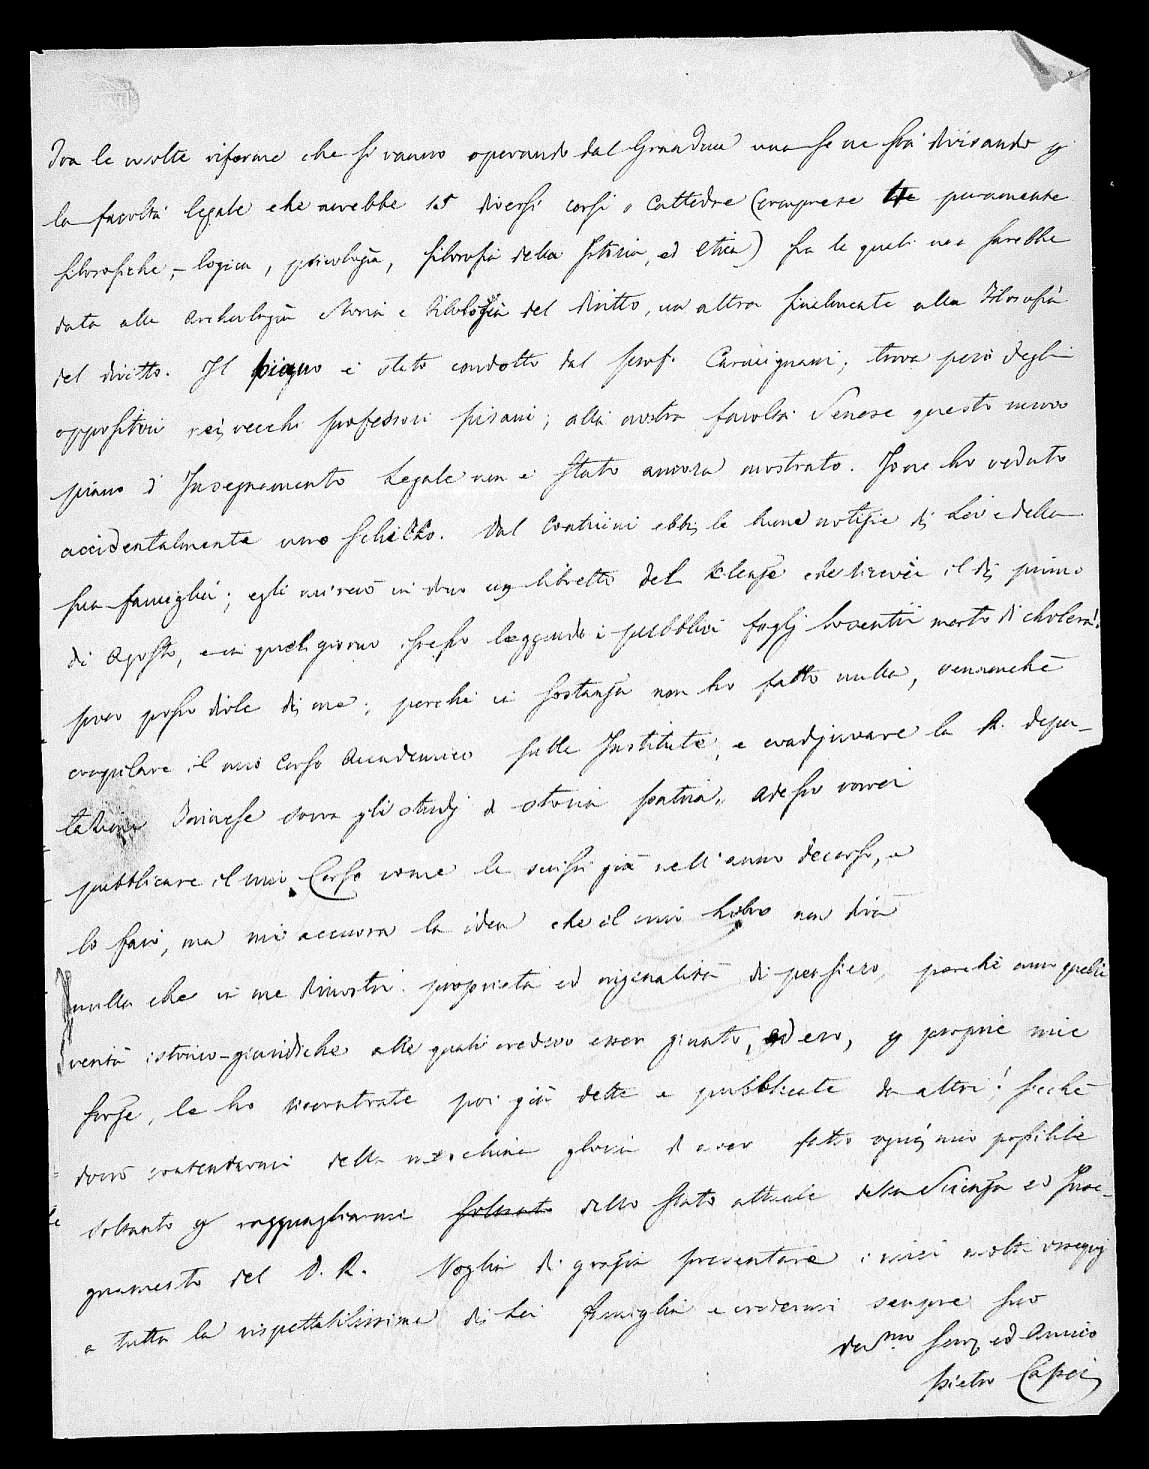 Tra le molte riforme che si vanno operando dal GranDuca una se ne sta divisando p
la facoltà legale che avrebbe 15 diversi corsi o Cattedre (comprese 4 puramente
filosofiche, - logica, psicologia, filosofia della storia, ed Etica) fra le quali una sarebbe
data alla Archeologia Storia e Filologia del diritto, un altra finalmente alla Filosofia
del diritto. Il piano è stato condotto dal prof. Carmignani; trova però degli
oppositori nei vecchi professori pisani; alla nostra facoltà Senese questo nuovo
piano d'Insegnamento Legale non è stato ancora mostrato. Io ne ho veduto
accidentalmente uno schizzo. Dal Contrucci ebbi le buone notizie di Lei e della
sua famiglia; egli mi recò in dono un libretto del Klenze che ricevei il dì primo
di Agosto, e in quel giorno stesso leggendo i pubblici foglj lo sentii morto di cholera!
poco posso dirle di me; perchè in sostanza non ho fatto nulla, tranne che
compilare il mio Corso Accademico sulle Institute, e coadjuvare la R. depu-
tazione Torinese sovra gli studj di storia patria. Adesso vorrei
pubblicare il mio Corso come le scrissi già nell'anno decorso, e
lo farò, ma mi accuora la idea che il mio libro non dirà
nulla che in me dimostri proprietà ed originalità di pensiero, perchè anco quelle
verità istorico-giuridiche alle quali credevo esser giunto, ed ero, p proprie mie
forze, le ho riscontrate poi già dette e pubblicate da altri! sicchè
dovrò contentarmi della meschina gloria d'aver fatto ogni mio possibile
soltanto p ragguagliarmi dello stato attuale della Scienza ed Inse-
gnamento del D. R. Voglia di grazia presentare i miei molti ossequj
a tutta la rispettabilissima di Lei famiglia e credermi sempre suo
dev.mo serv. ed Amico
Pietro Capei